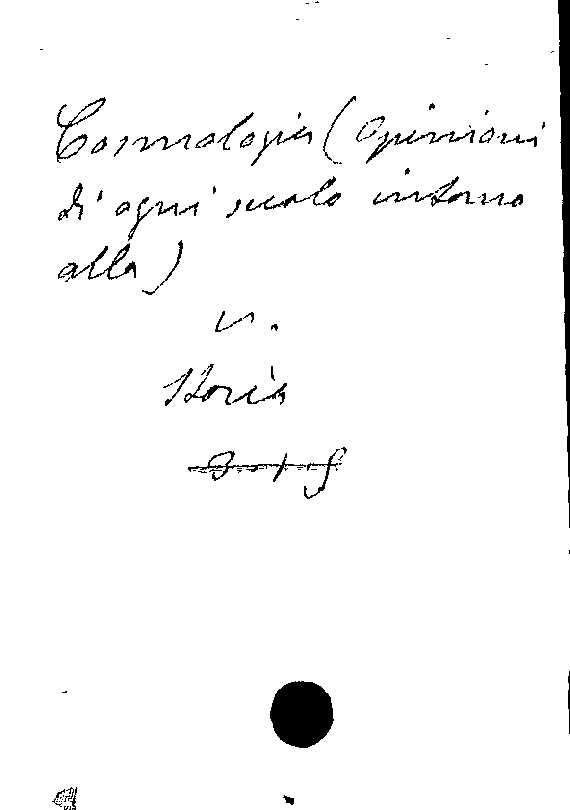 Cosmologia (Opinioni
di ogni secolo intorno
alla)
v.
Storia